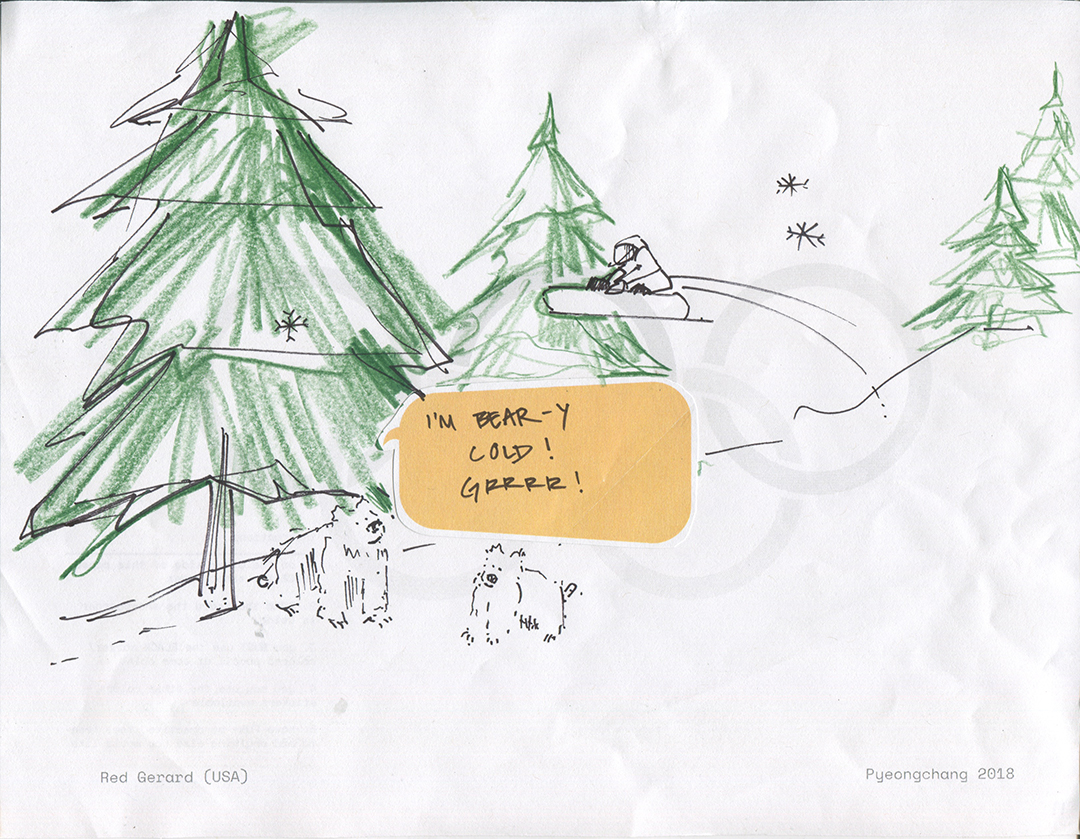 I'M BEAR-Y
COLD!
GRRRR!
Red Gerard (USA)
Pyeongchang 2018